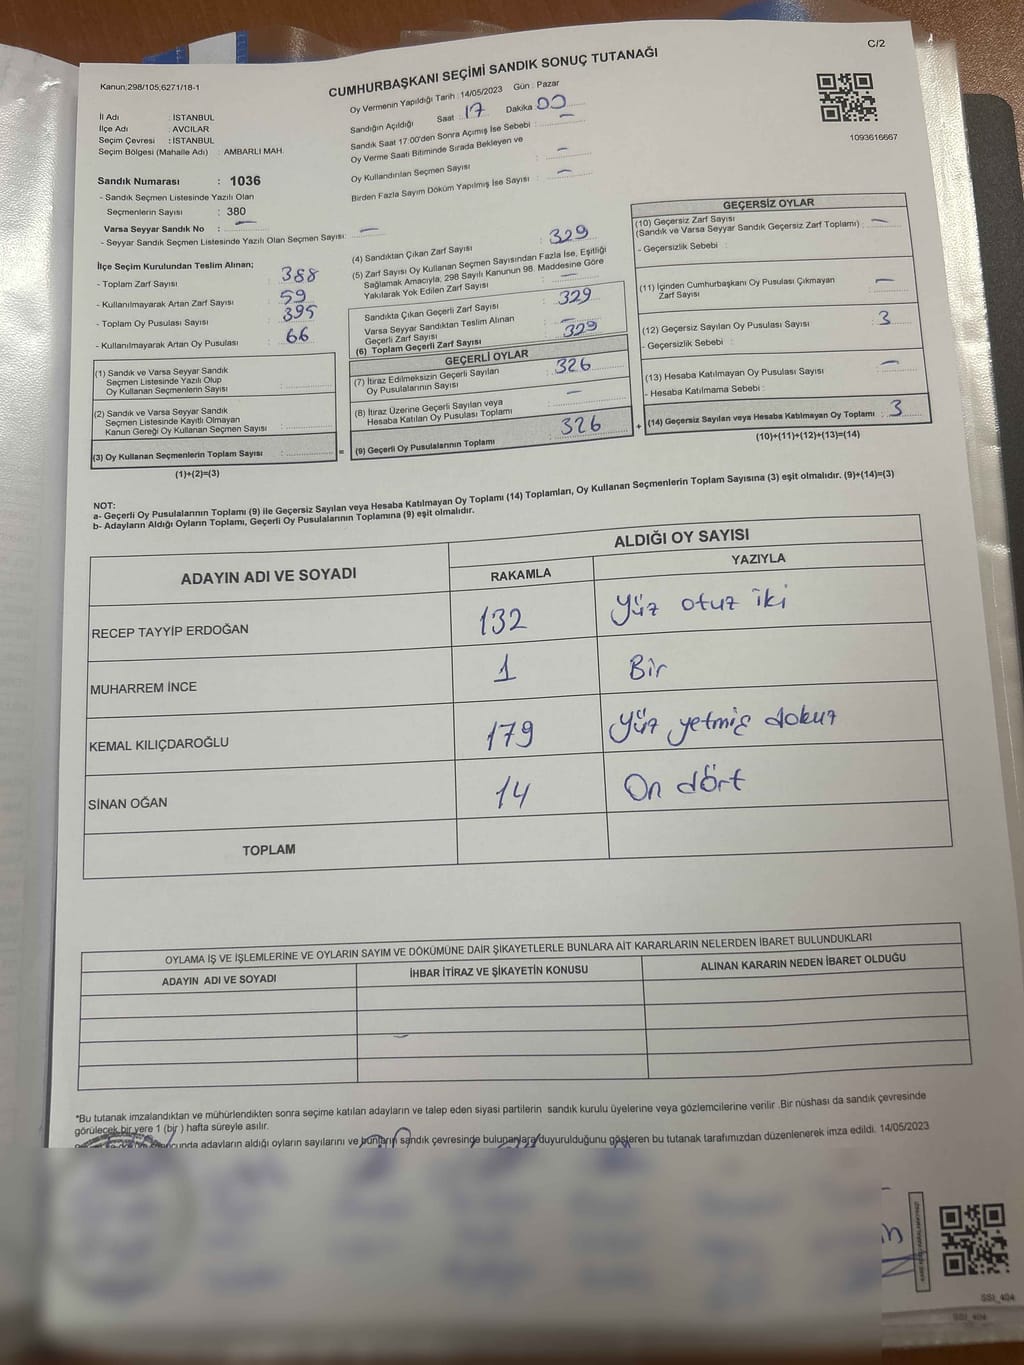 C/2
Kanun;298/105;6271/18-1
CUMHURBAŞKANI SEÇİMİ SANDIK SONUÇ TUTANAĞI
Oy Vermenin Yapıldığı Tarih : 14/05/2023 Gün : Pazar
Sandığın Açıldığı Saat : 17 Dakika : 00
Sandık Saat 17:00'den Sonra Açımış İse Sebebi : -
Oy Verme Saati Bitiminde Sırada Bekleyen ve
Oy Kullandırılan Seçmen Sayısı : -
Birden Fazla Sayım Döküm Yapılmış İse Sayısı : -
1093616667
İl Adı : İSTANBUL
İlçe Adı : AVCILAR
Seçim Çevresi : İSTANBUL
Seçim Bölgesi (Mahalle Adı) : AMBARLI MAH.
Sandık Numarası : 1036
- Sandık Seçmen Listesinde Yazılı Olan
Seçmenlerin Sayısı : 380
Varsa Seyyar Sandık No : -
- Seyyar Sandık Seçmen Listesinde Yazılı Olan Seçmen Sayısı: -
İlçe Seçim Kurulundan Teslim Alınan;
- Toplam Zarf Sayısı : 388
- Kullanılmayarak Artan Zarf Sayısı : 59
- Toplam Oy Pusulası Sayısı : 395
- Kullanılmayarak Artan Oy Pusulası : 66
(1) Sandık ve Varsa Seyyar Sandık
Seçmen Listesinde Yazılı Olup
Oy Kullanan Seçmenlerin Sayısı :
(2) Sandık ve Varsa Seyyar Sandık
Seçmen Listesinde Kayıtlı Olmayan
Kanun Gereği Oy Kullanan Seçmen Sayısı :
(3) Oy Kullanan Seçmenlerin Toplam Sayısı :
(1)+(2)=(3)
(4) Sandıktan Çıkan Zarf Sayısı : 329
(5) Zarf Sayısı Oy Kullanan Seçmen Sayısından Fazla İse, Eşitliği
Sağlamak Amacıyla, 298 Sayılı Kanunun 98. Maddesine Göre
Yakılarak Yok Edilen Zarf Sayısı : -
Sandıkta Çıkan Geçerli Zarf Sayısı : 329
Varsa Seyyar Sandıktan Teslim Alınan
Geçerli Zarf Sayısı : -
(6) Toplam Geçerli Zarf Sayısı : 329
GEÇERLİ OYLAR
(7) İtiraz Edilmeksizin Geçerli Sayılan
Oy Pusulalarının Sayısı : 326
(8) İtiraz Üzerine Geçerli Sayılan veya
Hesaba Katılan Oy Pusulası Toplamı : -
(9) Geçerli Oy Pusulalarının Toplamı : 326
GEÇERSİZ OYLAR
(10) Geçersiz Zarf Sayısı
(Sandık ve Varsa Seyyar Sandık Geçersiz Zarf Toplamı) : -
- Geçersizlik Sebebi :
(11) İçinden Cumhurbaşkanı Oy Pusulası Çıkmayan
Zarf Sayısı : -
(12) Geçersiz Sayılan Oy Pusulası Sayısı : 3
- Geçersizlik Sebebi :
(13) Hesaba Katılmayan Oy Pusulası Sayısı : -
- Hesaba Katılmama Sebebi :
(14) Geçersiz Sayılan veya Hesaba Katılmayan Oy Toplamı : 3
(10)+(11)+(12)+(13)=(14)
NOT:
a- Geçerli Oy Pusulalarının Toplamı (9) ile Geçersiz Sayılan veya Hesaba Katılmayan Oy Toplamı (14) Toplamları, Oy Kullanan Seçmenlerin Toplam Sayısına (3) eşit olmalıdır. (9)+(14)=(3)
b- Adayların Aldığı Oyların Toplamı, Geçerli Oy Pusulalarının Toplamına (9) eşit olmalıdır.
ADAYIN ADI VE SOYADI
ALDIĞI OY SAYISI
RAKAMLA YAZIYLA
RECEP TAYYİP ERDOĞAN 132 Yüz otuz iki
MUHARREM İNCE 1 Bir
KEMAL KILIÇDAROĞLU 179 Yüz yetmiş dokuz
SİNAN OĞAN 14 On dört
TOPLAM
OYLAMA İŞ VE İŞLEMLERİNE VE OYLARIN SAYIM VE DÖKÜMÜNE DAİR ŞİKAYETLERLE BUNLARA AİT KARARLARIN NELERDEN İBARET BULUNDUKLARI
ADAYIN ADI VE SOYADI İHBAR İTİRAZ VE ŞİKAYETİN KONUSU ALINAN KARARIN NEDEN İBARET OLDUĞU
*Bu tutanak imzalandıktan ve mühürlendikten sonra seçime katılan adayların ve talep eden siyasi partilerin sandık kurulu üyelerine veya gözlemcilerine verilir .Bir nüshası da sandık çevresinde
görülecek bir yere 1 (bir ) hafta süreyle asılır.
adayların aldığı oyların sayılarını ve bunların sandık çevresinde bulunanlara duyurulduğunu gösteren bu tutanak tarafımızdan düzenlenerek imza edildi. 14/05/2023
SSI_404
SSI_404